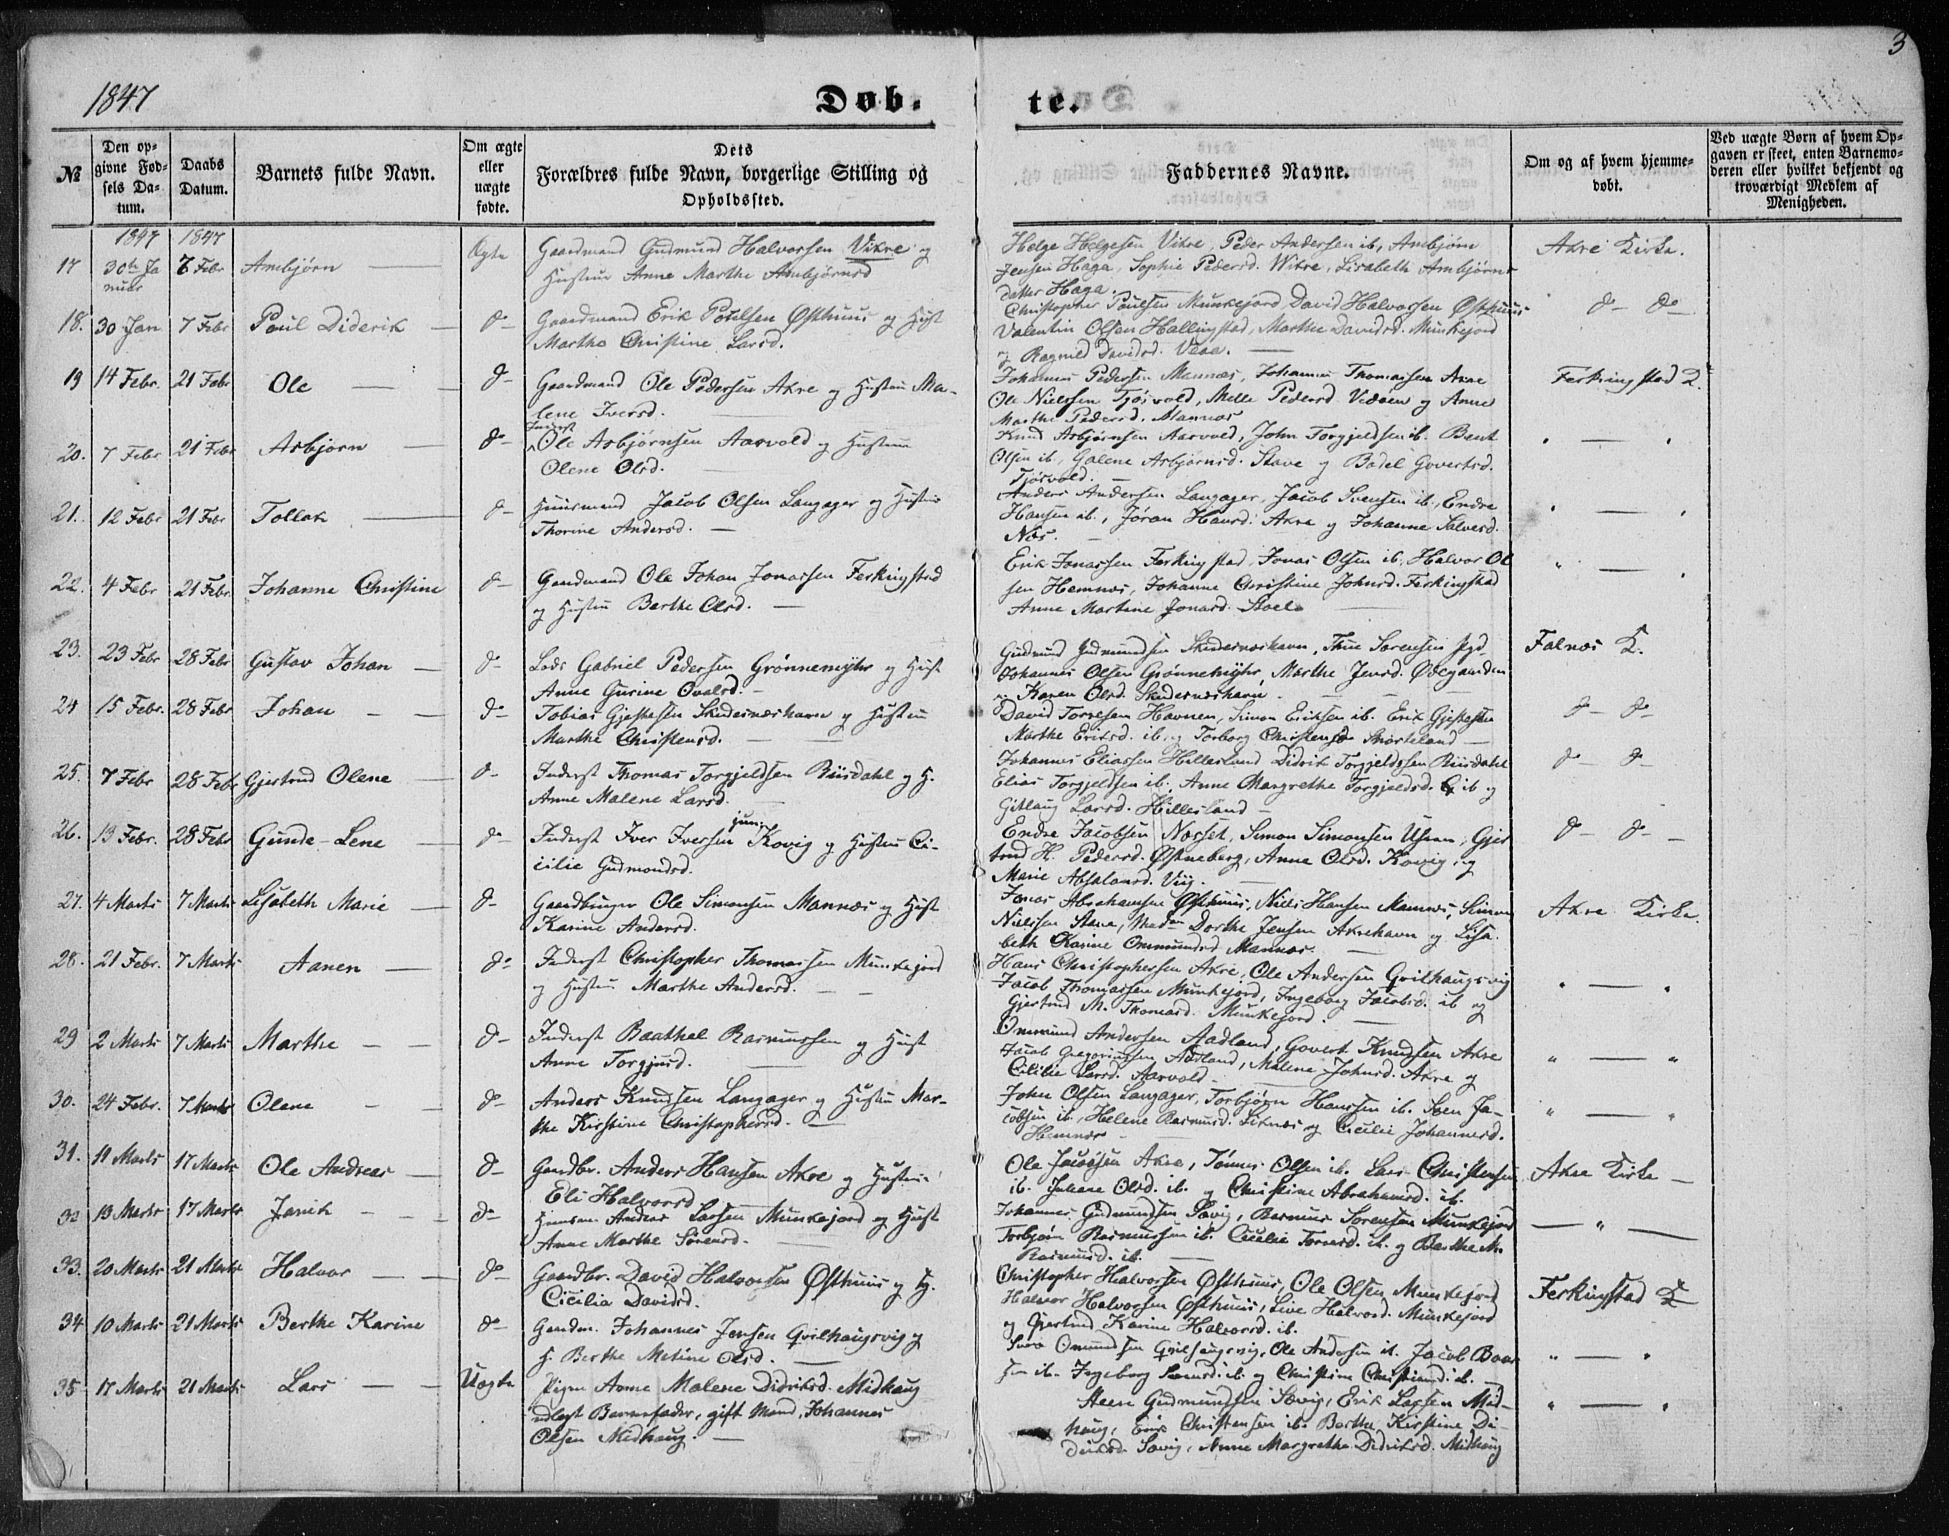 3
1847
Døb.
te.
№
Den op-
givne Fød-
sels Da-
tum.
Daabs
Datum.
Barnets fulde Navn.
Om ægte
eller
uægte
fødte.
Dets
Forældres fulde Navn, borgerlige Stilling og
Opholdssted.
Faddernes Navne.
Om og af hvem hjemme-
døbt.
Ved uægte Børn af hvem Op-
gaven er skeet, enten Barnemo-
deren eller hvilket bekjendt og
troværdigt Medlem af
Menigheden.
1847 1847
17 30te Ja
nuar
7 Febr Ambjørn Ægte
Gaardmand Gudmund Halvorsen Vikre og
Hustrue Anne Marthe Ambjørnsd
Helge Helgesen Vikre, Peder Andersen ib, Ambjørn
Jensen Haga, Sophie Pedersd. Wikre, Lisabeth Ambjørns
datter Haga.
Akre Kirke.
18. 30 Jan 7 Febr Poul Diderik do
Gaardmand Erik Poulsen Østhuus og Hust
Marthe Christine Larsd.
Christopher Poulsen Munkejord David Halvorsen Østhuus
Valentin Olsen Hallingstad, Marthe Davidsd. Munkejord
og Ragnild Davidsd. Veae.
do do
19 14 Febr. 21 Febr Ole do
Gaardmand Ole Pedersen Akre og Hustrue Ma-
lene Iversd.
Johannes Pedersen Mannæs, Johannes Thomassen Akre
Ole Nielsen Tjøsvold, Melle Pedersd Vedøen og Anne
Marthe Pedersd. Mannæs
Ferkingstad K.
20. 7 Febr 21 Febr Asbjørn do
Inderst
Ole Asbjørnsen Aarvold og Hustrue
Olene Olsd.
Knud Asbjørnsen Aarvold, John Torgjeldsen ib. Bent
Olsen ib, Galene Asbjørnsd. Stave og Bodel Govertsd.
Tjøsvold.
21. 12 Febr 21 Febr Tollak do
Huusmand Jacob Olsen Langager og Hustrue
Thorine Andersd.
Anders Andersen Langager, Jacob Svensen ib., Endre
Hansen ib., Jøran Hansd. Akre og Johanne Salvesd.
Næs.
22. 4 Febr 21 Febr. Johanne Christine do
Gaardmand Ole Johan Jonassen Ferkingstad
og Hustrue Berthe Olsd.
Erik Jonassen Ferkingstad, Jonas Olsen ib, Halvor Ol
sen Hemnæs, Johanne Christine Johnsd. Ferkingstad
Anne Martine Jonasd. Stoel.
23. 23 Febr 28 Febr Gustav Johan do
Lods Gabriel Pedersen Grønnemyhr og Hust
Anne Gurine Ovalsd.
Gudmund Gudmundsen Skudesnæshavn, Thue Sørensen
Johannes Olsen Grønnemyhr, Marthe Jensd. Ødegaarden
og Karen Olsd. Skudesnæshavn.
Falnæs K.
24 15 Febr. 28 Febr Johan do
Tobias Gjestesen Skudesnæshavn og Hustrue
Marthe Christensd.
David Torresen Havnen, Simon Eriksen ib. Erik Gjestesen
Marthe Eriksd. ib, og Torborg Christensd Snorteland
do do
25. 7 Febr 28 Febr Gjertrud Olene do
Inderst Thomas Torgjeldsen Riisdahl og H.
Anne Malene Larsd.
Johannes Eliassen Hillesland Didrik Torgjeldsen Riisdahl
Elias Torgjeldsen ib, Anne Margrethe Torgjeldsd. ib og
Gitlaug Larsd. Hillesland
do do
26. 13 Febr. 28 Febr Gunde-Lene do
Inderst Iver Iversen Kovig og Hustrue Ci-
cilie Gudmundsd.
Endre Jacobsen Norset, Simon Simonsen Ulsnæs, Gjer
trud H. Pedersd. Østneberg, Anne Olsd. Kovig, og
Marie Absalonsd. Viig.
do do
27. 4 Marts 7 Marts Lisabeth Marie do
Gaardbruger Ole Simonsen Mannæs og Hust
Karine Andersd.
Jonas Abrahamsen Østhuus, Niels Hansen Mannæs, Simon
Nielsen Stave, Mad Dorthe Jensen Akrehavn og Lisa-
beth Karine Ommundsd Mannæs.
Akre Kirke
28. 21 Febr. 7 Marts Aanen do
Inderst Christopher Thomassen Munkejord
og Hustrue Marthe Andersd.
Hans Christophersen Akre, Ole Andersen Qvilhaugsvig
Jacob Thomassen Munkejord, Ingeborg Jacobsd. ib og
Gjertrud M. Thomasd. Munkejord.
29 2 Marts 7 Marts Marthe do
Inderst Baathel Rasmussen og Hust
Anne Torgjusd.
Ommund Andersen Aadland, Govert Knudsen Akre
Jacob Gregoriussen Aadland, Malene Johnsd. Akre og
Cicilie Larsd. Aarvold
30. 24 Febr. 7 Marts Olene do
Anders Knudsen Langager og Hustrue Mar-
the Kirstine Christophersd.
John Olsen Langager, Torbjørn Hansen ib. Sven Ja-
cobsen ib, Helene Rasmusd. Liknæs og Cicilie Johannesd.
Hemnæs
31. 11 Marts 17 Marts Ole Andreas do
Gaardbr. Anders Hansen Akre og Hustrue
Eli Halvorsd
Ole Jacobsen Akre, Tønnes Olsen ib. Lars Christensen
ib. Juliane Olsd. ib. og Christine Abrahamsd. ib.
Akre Kirke
32 13 Marts 17 Marts Janik do
Huusm. Andreas Larsen Munkejord og Hust
Anne Marthe Sørensd.
Johannes Gudmundsen Søvig, Rasmus Sørensen Munkejord
Torbjørn Rasmussen ib. Cicilie Torresd. ib. og Berthe M.
Rasmusd. ib.
33. 20 Marts 21 Marts Halvor do
Gaardbr. David Halvorsen Østhuus og H.
Cicilia Davidsd.
Christopher Halvorsen Østhuus, Ole Olsen Munkejord
Halvor Halvorsen Østhuus, Live Halvorsd. Munkejord
og Gjertrud Karine Halvorsd. ib.
Ferkingstad K
34 10 Marts 21 Marts Berthe Karine do
Gaardm. Johannes Jensen Qvilhaugsvig og
H. Berthe Metine Olsd.
Omundsen Qvilhaugsvig, Ole Andersen ib. Jacob Baar
sen ib. Ingeborg ib. og Christine Christensd ib.
35 17 Marts 21 Marts Lars Uægte
Pigen Anne Malene Didriksd. Midhaug
udlagt Barnefader, gift Mand, Johannes
Olsen Midhaug.
Gudmundsen Søvig, Erik Larsen Mid-
haug, Erik Christensen ib. Berthe Kirstine Di-
driksd. Søvig, Anne Margrethe Didriksd. Midhaug